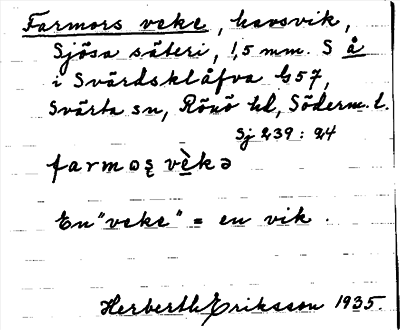 Farmors veke, havsvik,
Sjösa säteri, 1,5 mm. S å
i Svärdsklåfva G57,
Svärta sn, Rönö hd, Söderm. l.
Sj 239 : 24
farmoʂ vèkə
En "veke" = en vik.
Herberth Eriksson 1935.